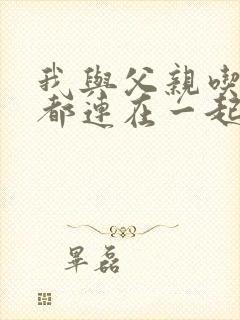 我與父親喫
都連在一起
畢磊